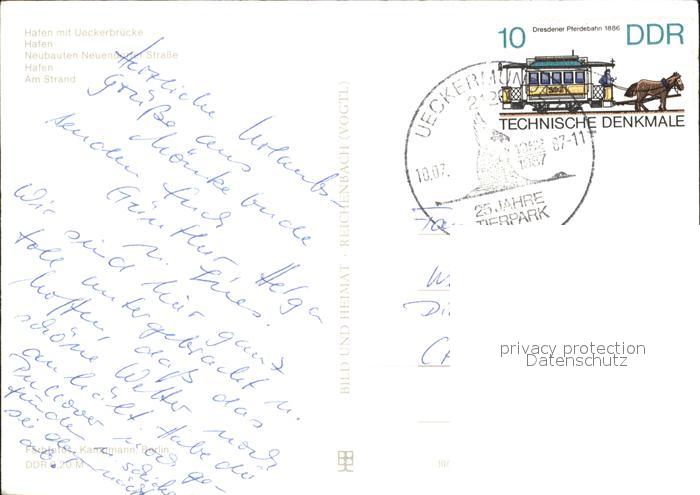 Hafen mit Ueckerbrücke
Hafen
Neubauten Neuendorfer Straße
Hafen
Am Strand
Herzliche Urlaubs-
grüße aus
Mönkebude
senden Euch
Günther, Helga
u. Ines.
Wir sind hier ganz
toll untergebracht u.
hoffen, daß das
schöne Wetter noch
anhält. Habe die
Pullover
Farbfotos: Kampmann, Berlin
DDR 0,20 M
BILD UND HEIMAT · REICHENBACH (VOGTL)
10 Dresdener Pferdebahn 1886 DDR
TECHNISCHE DENKMALE
UECKERMÜN
10.07.
87-11
1962
1987
25 JAHRE
TIERPARK
Fa
privacy protection
Datenschutz